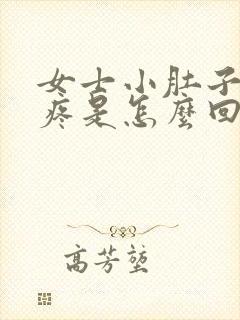 女士小肚子
疼是怎麼回
高芳堃